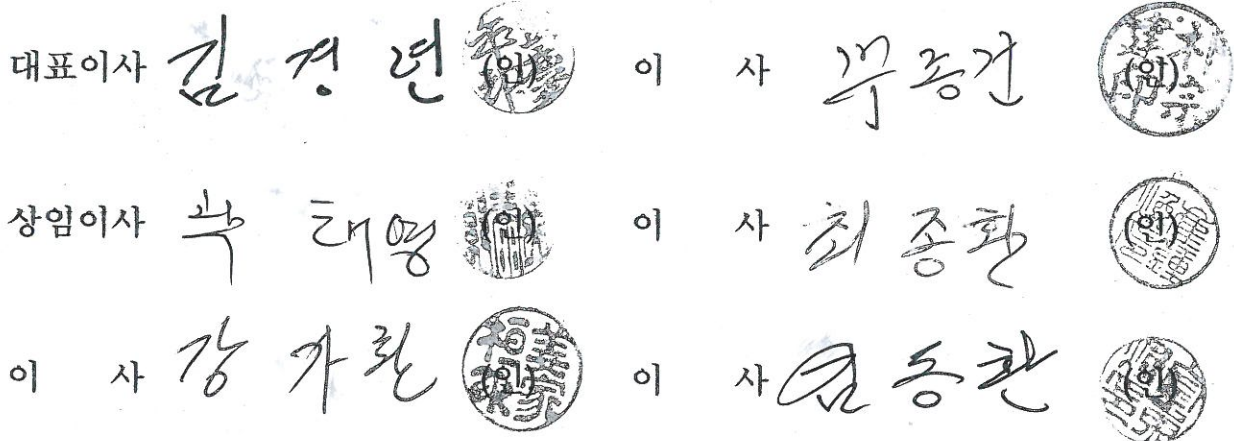 대표이사 김 경 년 (인) 이 사 박종건 (인)
상임이사 곽 태영 (인) 이 사 최종환 (인)
이 사 강 가 환 (인) 이 사 김종환 (인)